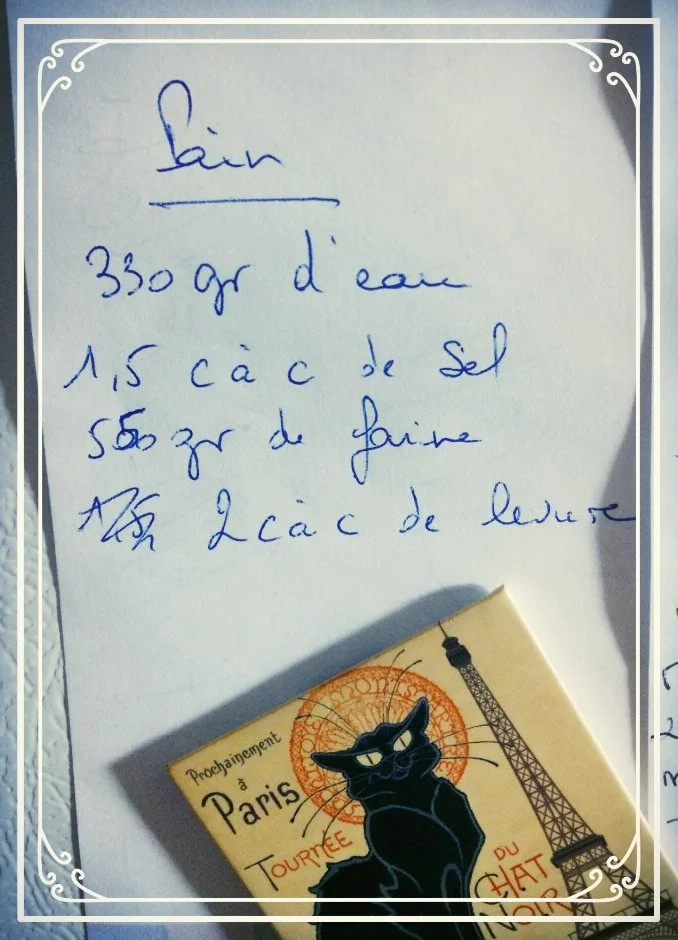 Pain
330 gr d'eau
1,5 c à c de Sel
550 gr de farine
2 c à c de levure
Prochainement
à
Paris
TOURNÉE
DU
CHAT
NOIR